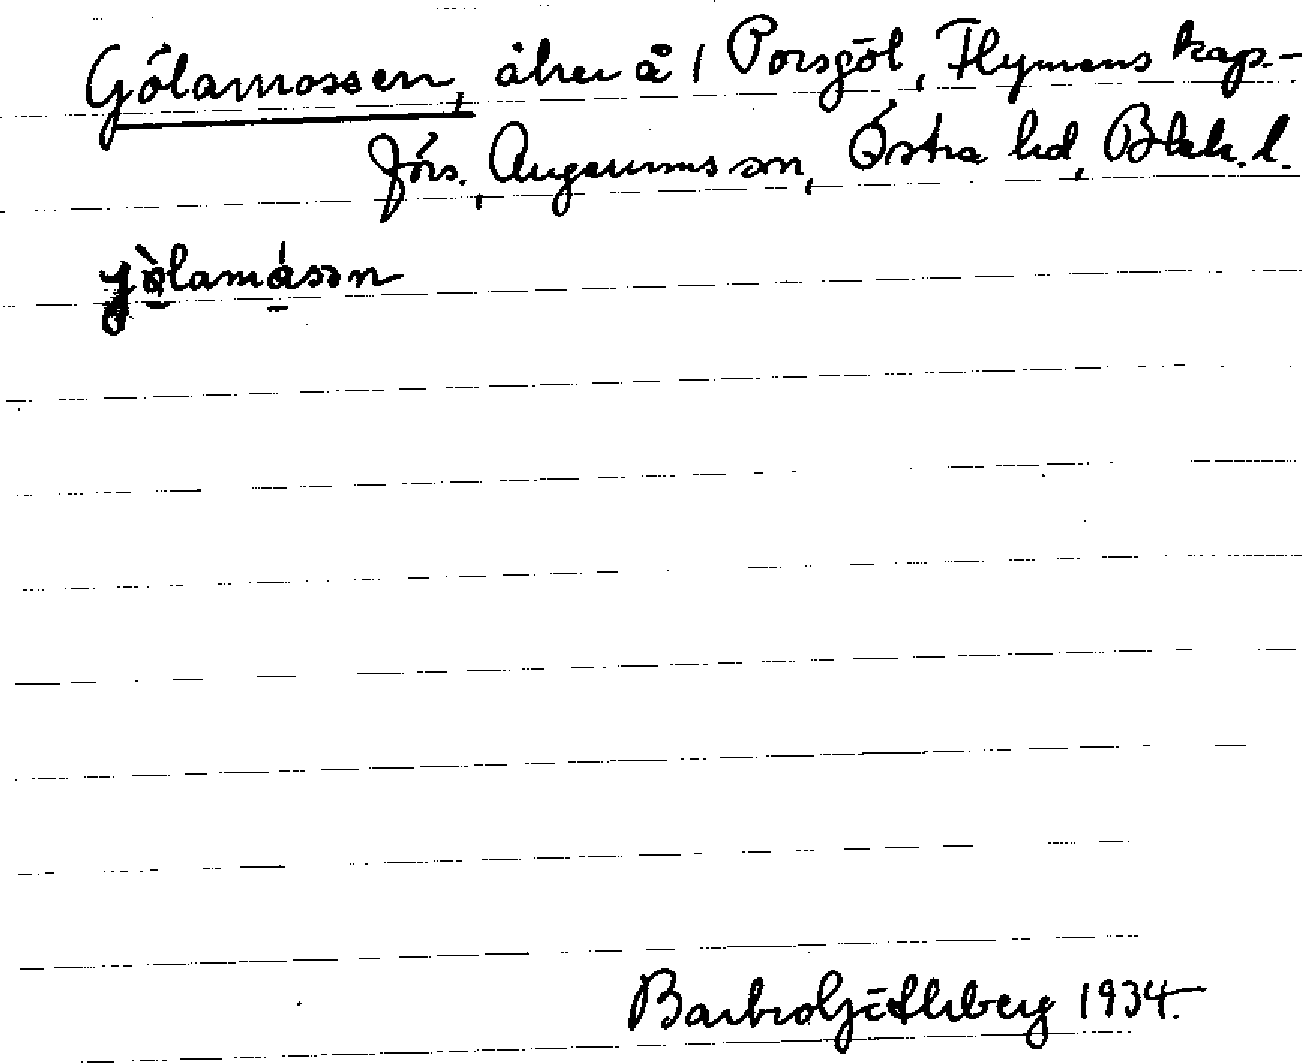 Gölamossen, åker å 1 Porsgöl, Flymens kap.-
förs., Augerums sn, Östra hd, Blek. l.
jö̀lamåsən
Barbro Götherberg 1934.